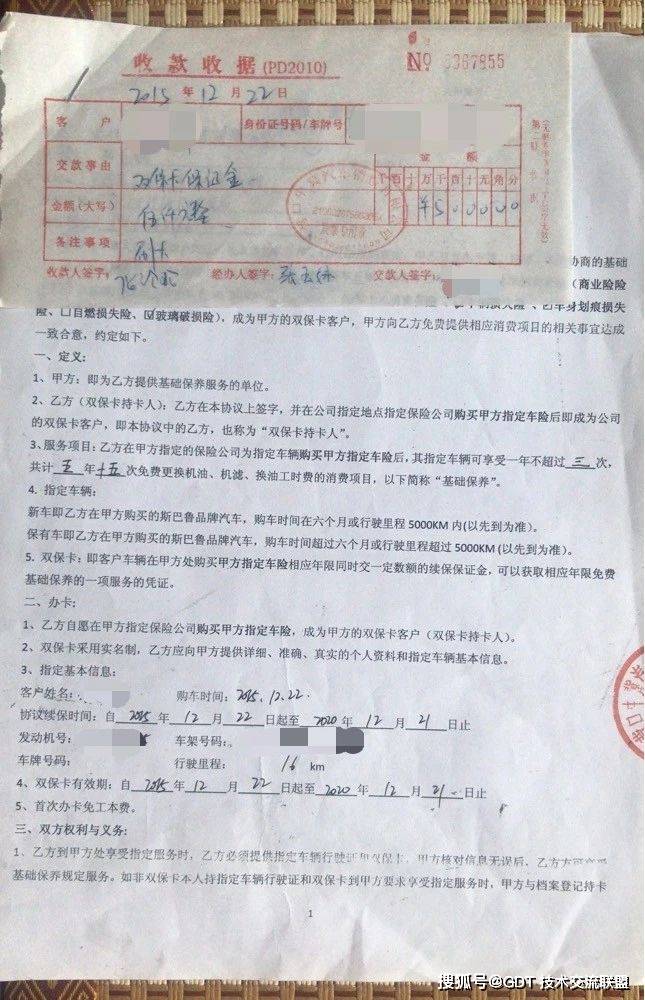 收款收据(PD2010)
№ 0367855
2015 年 12 月 22 日
客 户
身份证号码/车牌号
交款事由
双保卡保证金
金 额
百十万千百十元角分
金额(大写)
伍仟元整
¥500000
备注事项
刷卡
收款人签字:
经办人签字:
交款人签字:
协商的基础
(商业险险
险、□自燃损失险、☑玻璃破损险),成为甲方的双保卡客户,甲方向乙方免费提供相应消费项目的相关事宜达成
一致合意,约定如下。
一、定义:
1、甲方:即为乙方提供基础保养服务的单位。
2、乙方(双保卡持卡人):乙方在本协议上签字,并在公司指定地点指定保险公司购买甲方指定车险后即成为公司
的双保卡客户,即本协议中的乙方,也称为“双保卡持卡人”。
3、服务项目:乙方在甲方指定的保险公司为指定车辆购买甲方指定车险后,其指定车辆可享受一年不超过 三 次,
共计 五 年 十五 次免费更换机油、机滤、换油工时费的消费项目,以下简称“基础保养”。
4. 指定车辆:
新车即乙方在甲方购买的斯巴鲁品牌汽车,购车时间在六个月或行驶里程 5000KM 内(以先到为准)。
保有车即乙方在甲方购买的斯巴鲁品牌汽车,购车时间超过六个月或行驶里程超过 5000KM (以先到为准)。
5. 双保卡:即客户车辆在甲方处购买甲方指定车险相应年限同时交一定数额的续保保证金,可以获取相应年限免费
基础保养的一项服务的凭证。
二、办卡:
1、乙方自愿在甲方指定保险公司购买甲方指定车险,成为甲方的双保卡客户(双保卡持卡人)。
2、双保卡采用实名制,乙方应向甲方提供详细、准确、真实的个人资料和指定车辆基本信息。
3、指定基本信息:
客户姓名: 购车时间:2015.12.22.
协议续保时间:自 2015 年 12 月 22 日起至 2020 年 12 月 21 日止
发动机号: 车架号码:
车牌号码: 行驶里程: 16 km
4、双保卡有效期:自 2015 年 12 月 22 日起至 2020 年 12 月 21 日止
5、首次办卡免工本费。
三、双方权利与义务:
1、乙方到甲方处享受指定服务时,乙方必须提供指定车辆行驶证和双保卡,甲方核对信息无误后,乙方方可享受
基础保养规定服务。如非双保卡本人持指定车辆行驶证和双保卡到甲方要求享受指定服务时,甲方与档案登记持卡
1
搜狐号@GDT 技术交流联盟